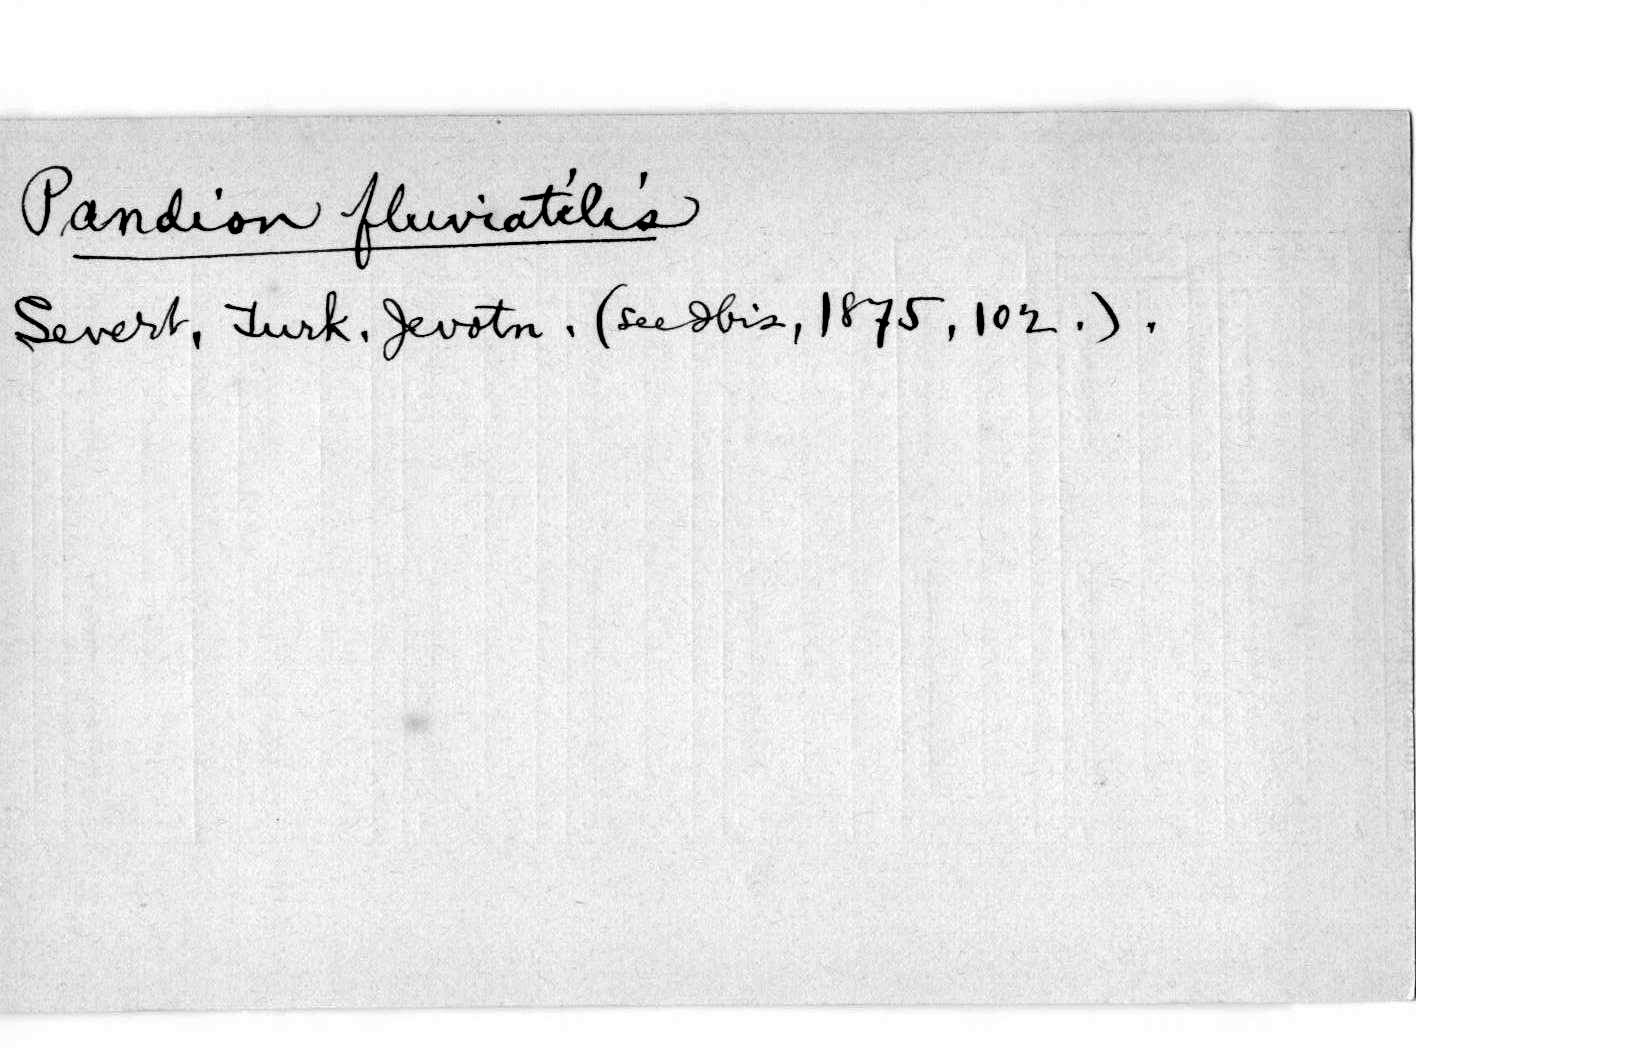 Pandion fluviatilis
Severt, Turk. Jevotn. (see Ibis, 1875, 102.).